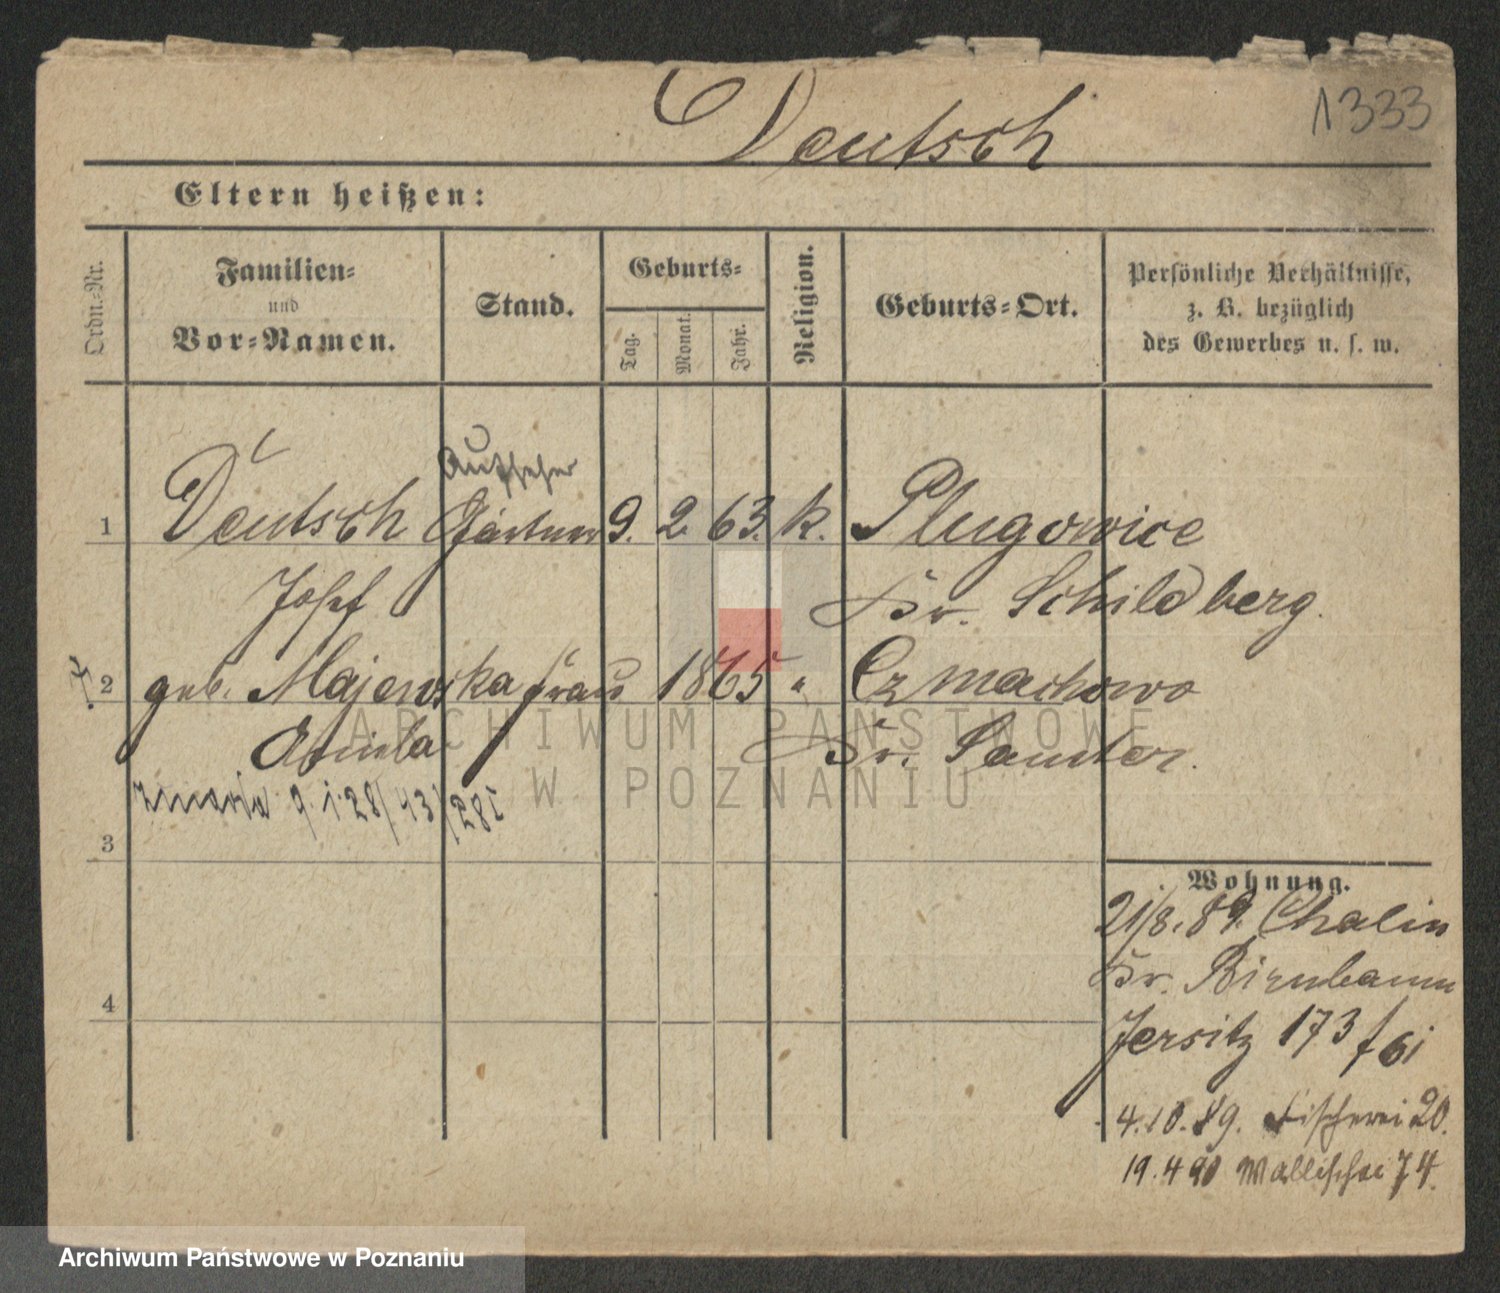 1333
Deutsch
Eltern heißen:
Ordn.-Nr.
Familien-
und
Vor-Namen.
Stand.
Geburts-
Tag.
Monat.
Jahr.
Religion.
Geburts-Ort.
Persönliche Verhältnisse,
z. B. bezüglich
des Gewerbes u. s. w.
Aufseher
1 Deutsch Gärtner 9. 2. 63. k. Plugowice
Josef Kr. Schildberg.
2 geb. Majewska Frau 1865 " Czmachowo
Kr. Samter.
zmarła 9.1.28/43/281
3
Wohnung.
21/8. 89. Chalin
Kr. Birnbaum
Jersitz 173 f 61
4
4.10.89. Fischerei 20.
19.4 90 Wallischei 74.
ARCHIWUM PAŃSTWOWE
W POZNANIU
Archiwum Państwowe w Poznaniu